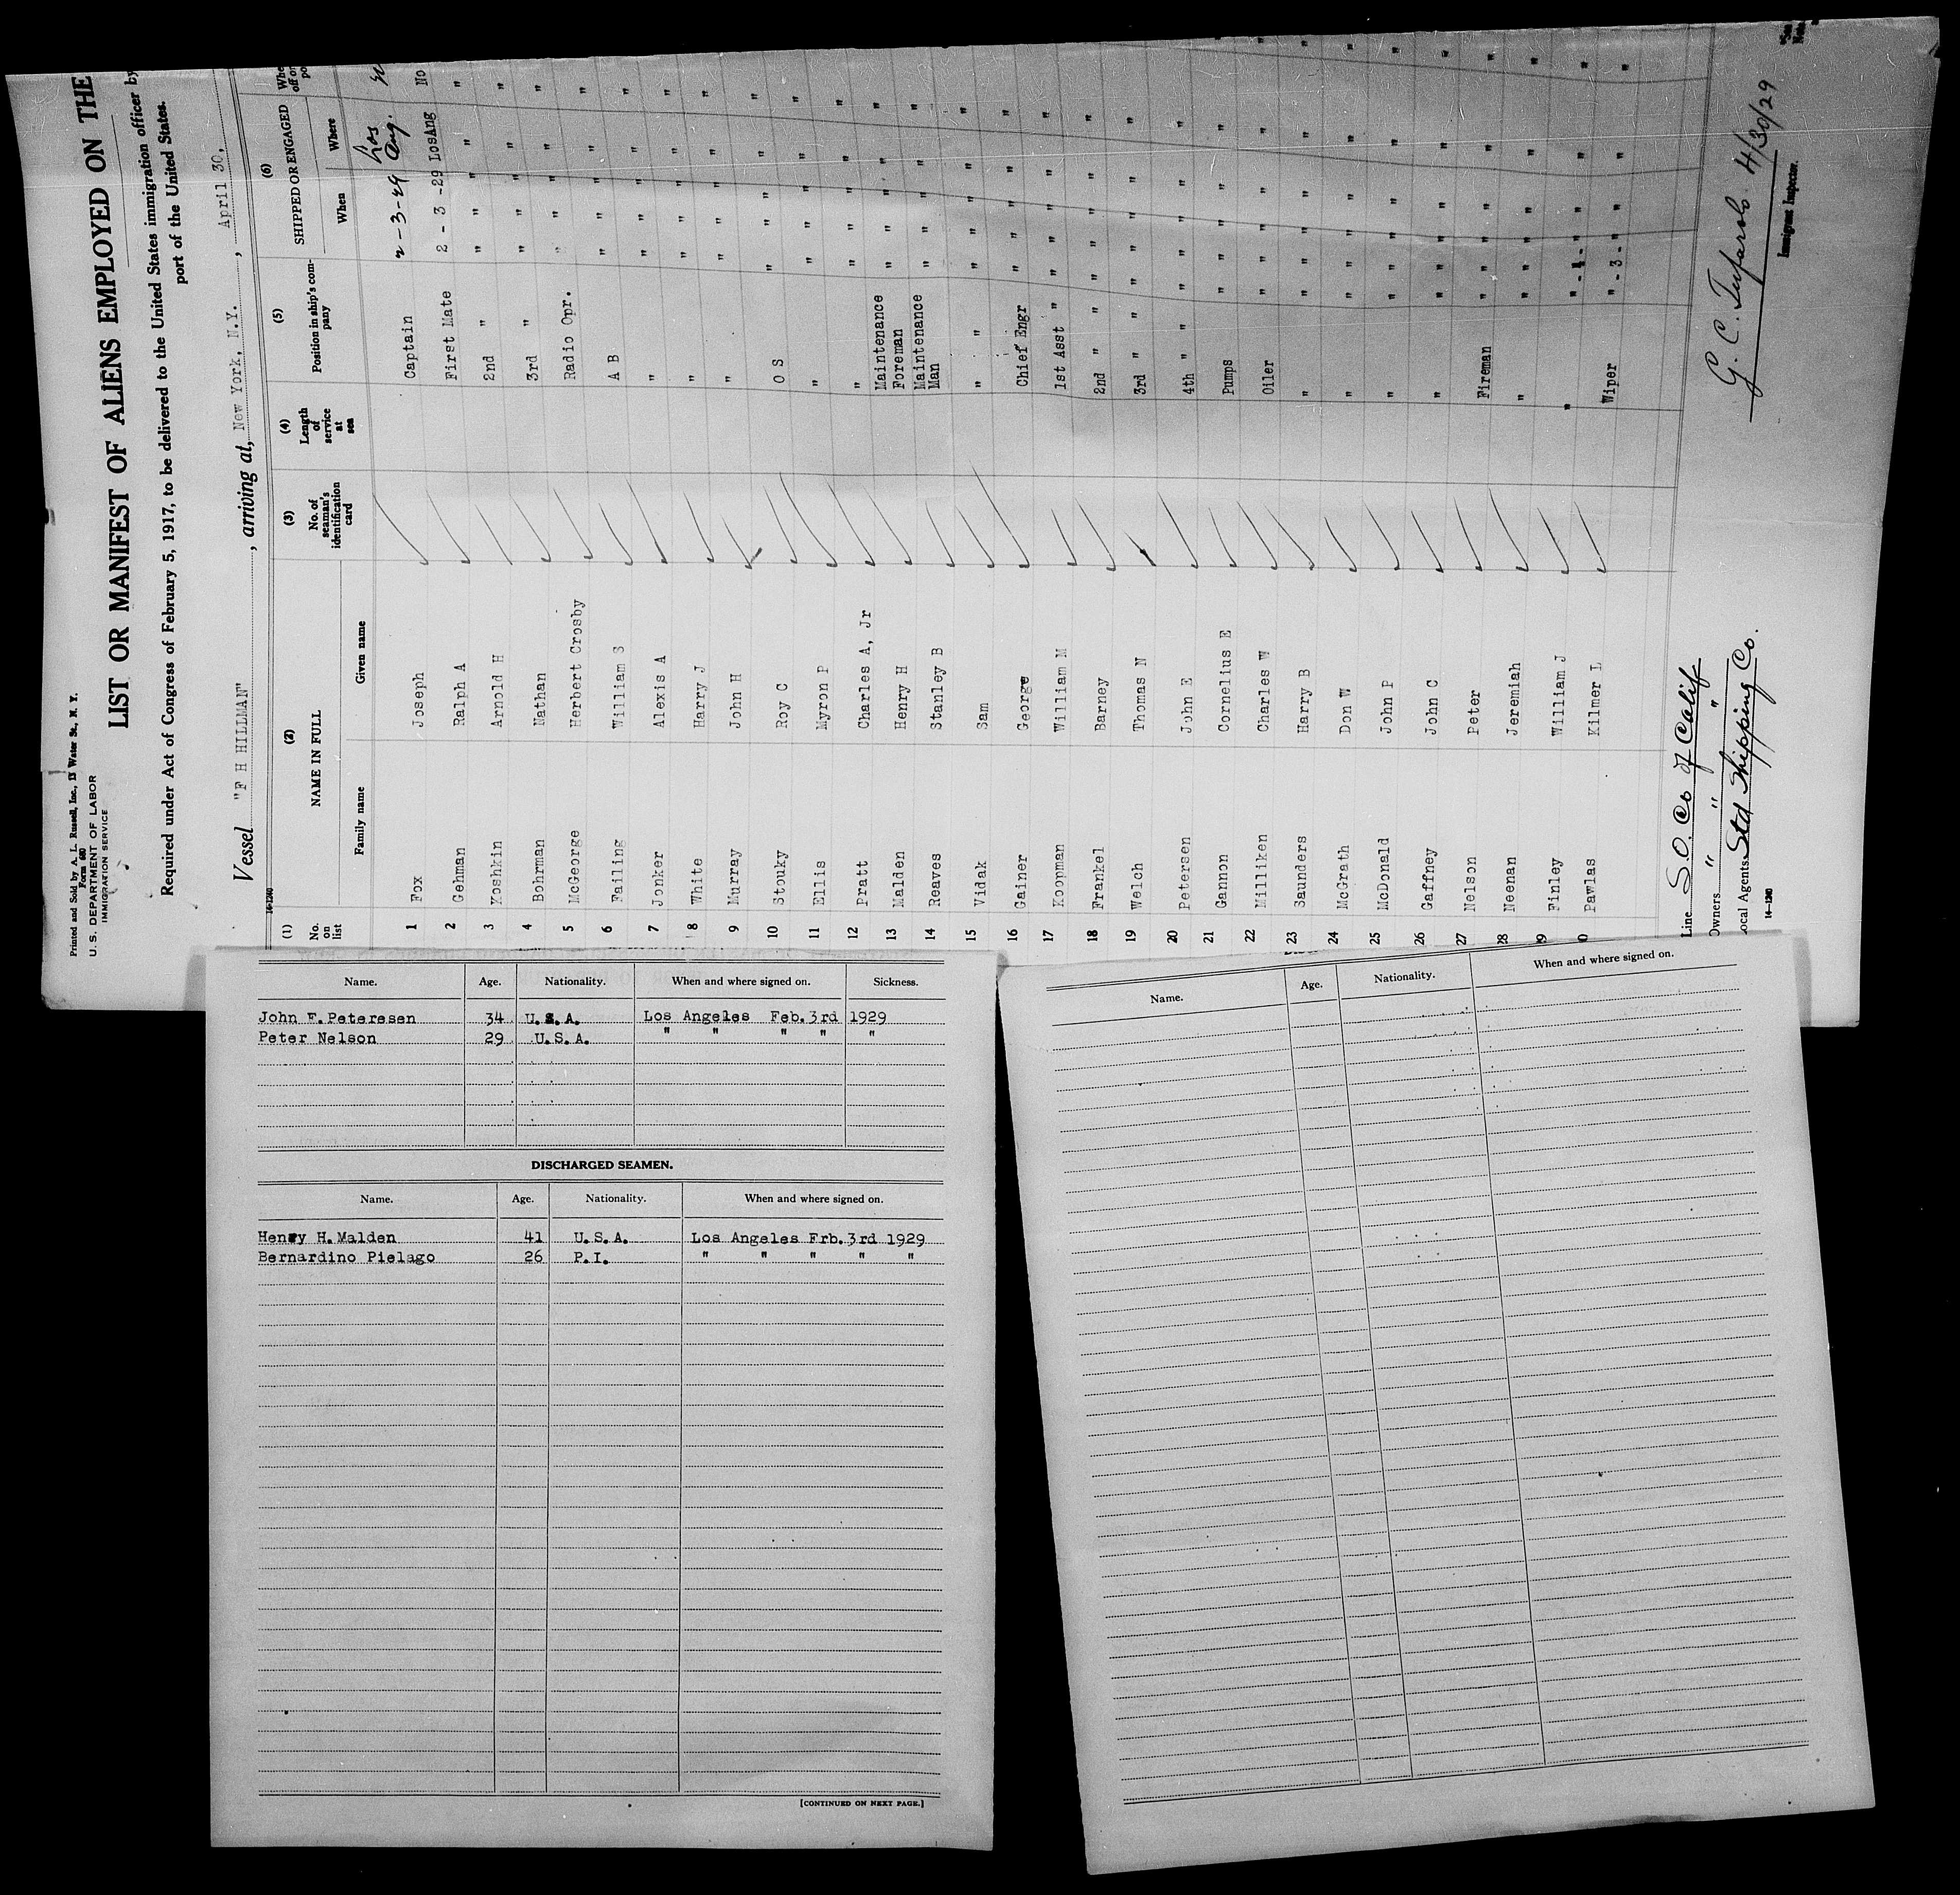 Printed and Sold by A. L. Russell, Inc., 13 Water St., N. Y.
Form 680
U. S. DEPARTMENT OF LABOR
IMMIGRATION SERVICE
LIST OR MANIFEST OF ALIENS EMPLOYED ON THE
Required under Act of Congress of February 5, 1917, to be delivered to the United States immigration officer by
port of the United States.
Vessel "F H HILLMAN", arriving at, New York. N.Y., April 30,
14-1240
(1) (2) (3) (4) (5) (6)
No. on list NAME IN FULL No. of seaman's identification card Length of service at sea Position in ship's company SHIPPED OR ENGAGED
Family name Given name When Where
2-3-29 Los Ang.
1 Fox Joseph Captain 2 - 3 -29 LosAng No
2 Gehman Ralph A First Mate " " " "
3 Koshkin Arnold H 2nd " " " " "
4 Bohrman Nathan 3rd " " " " "
5 McGeorge Herbert Crosby Radio Opr. " " " "
6 Failing William S A B " " " "
7 Jonker Alexis A " " " " "
8 White Harry J " " " " "
9 Murray John H " " " " "
10 Stouky Roy C O S " " " "
11 Ellis Myron P " " " " "
12 Pratt Charles A, Jr " " " " "
13 Malden Henry H Maintenance Foreman " " " "
14 Reaves Stanley B Maintenance Man " " " "
15 Vidak Sam " " " " " "
16 Gainer George Chief Engr " " " "
17 Koopman William M 1st Asst " " " " "
18 Frankel Barney 2nd " " " " " "
19 Welch Thomas N 3rd " " " " " "
20 Petersen John E 4th " " " " " "
21 Gannon Cornelius E Pumps " " " "
22 Milliken Charles W Oiler " " " "
23 Saunders Harry B " " " " "
24 McGrath Don W " " " " "
25 McDonald John P " " " " "
26 Gaffney John C " " " " "
27 Nelson Peter Fireman " " " "
28 Neenan Jeremiah " " " " "
9 Finley William J " " " "
0 Pawlas Kilmer L Wiper " - 3 - " " "
Line S.O. Co of Calif
Owners " " " "
Local Agents Std Shipping Co.
14-1240
4/30/29
Immigrant Inspector.
Name. Age. Nationality. When and where signed on. Sickness.
John F. Peteresen 34 U.S.A. Los Angeles Feb.3rd 1929
Peter Nelson 29 U.S.A. " " " " "
DISCHARGED SEAMEN.
Name. Age. Nationality. When and where signed on.
Henry H. Malden 41 U.S.A. Los Angeles Frb.3rd 1929
Bernardino Pielago 26 P.I. " " " " "
[CONTINUED ON NEXT PAGE.]
Name. Age. Nationality. When and where signed on.